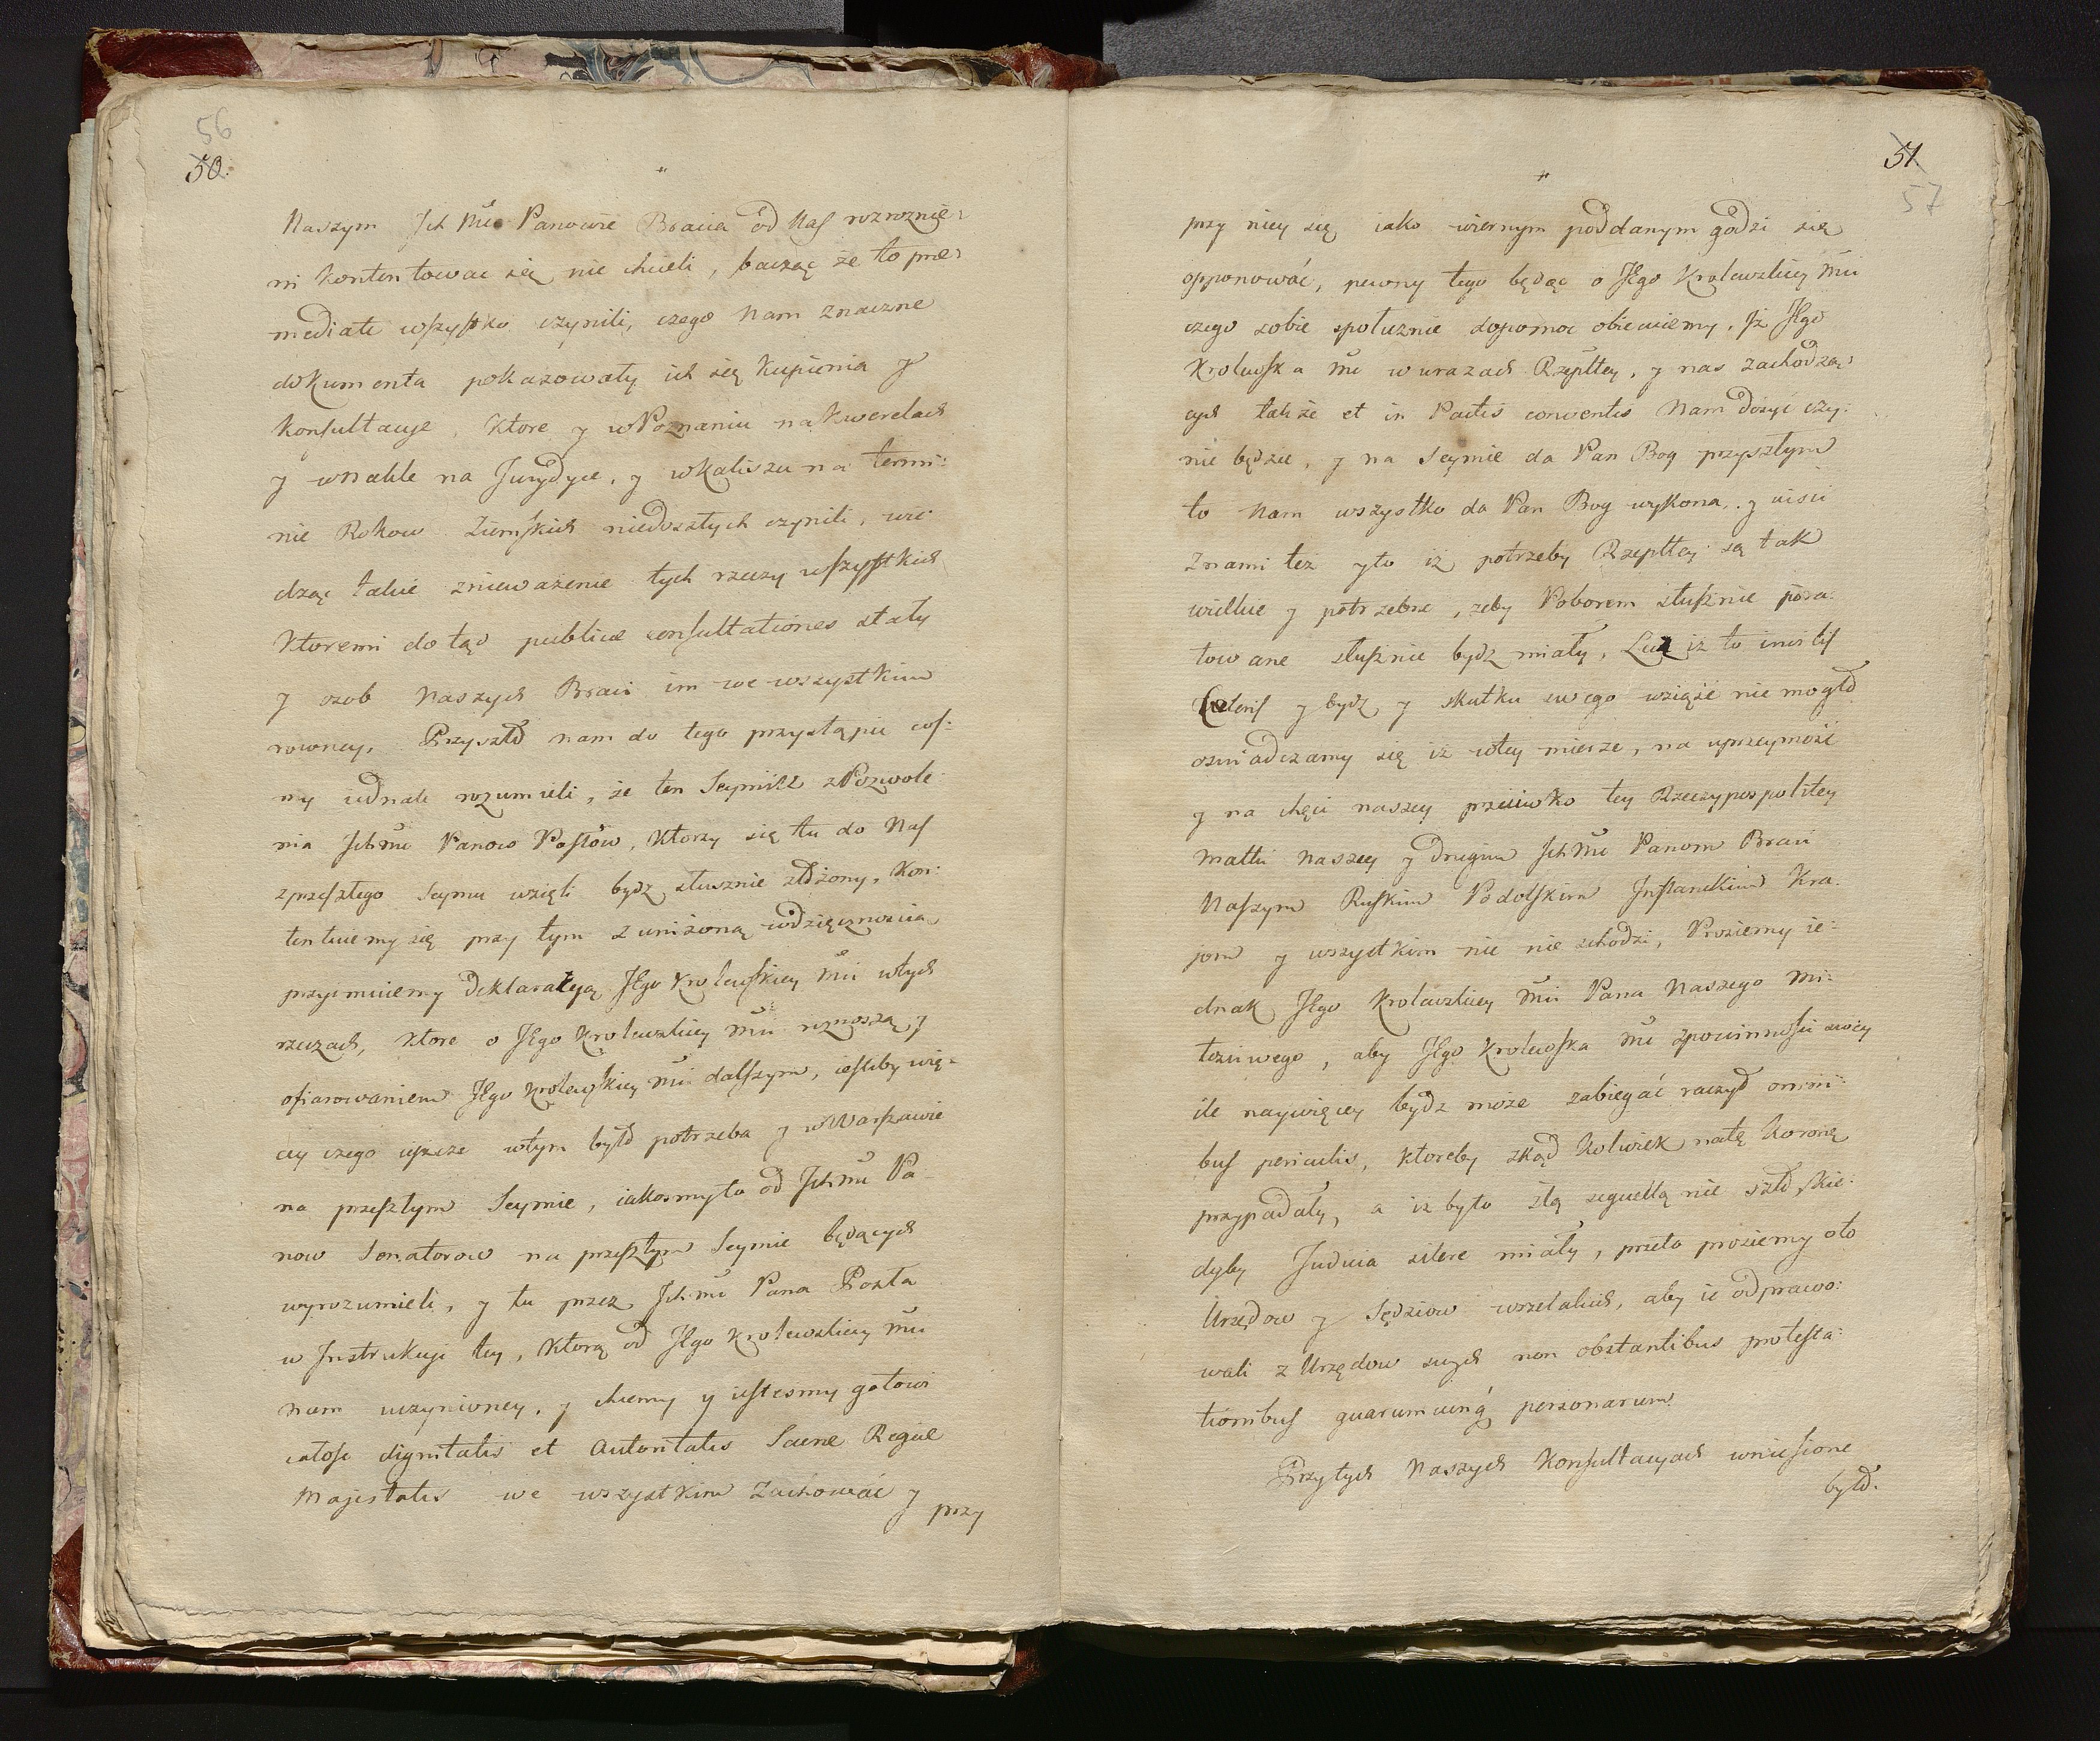 56
50.
Naszym Ich Mć Panowie Bracia od Nas rozrozni-
ni kontentowac się nie chcieli, bacząc że to præ-
mediate wszystko czynili, czego Nam znaczne
dokumenta pokazowały ich się kupienia y
konsultacye, ktore y w Poznaniu na kwerelach
y w Nakle na Jurydyce, y w Kaliszu na termi-
nie Rokow Ziemskich niedoszłych czynili, wi-
dząc takie znieważenie tych rzeczy wszystkich
ktoremi do tąd publicæ consultationes stały
y osob Naszych Braci im we wszystkim
rowney. Przyszło nam do tego przystąpić cos-
my iednak rozumieli, że ten Seymik z Pozwole-
nia Ichmć Panow Posłow, ktorzy się tu do Nas
z przeszłego Seymu wzięli bydz słusznie złożony, Kon-
tentuiemy się przy tym z uniżoną wdzięcznoscią
przyimuiemy deklaratyą Jego Krolewskiey Mci w tych
rzeczach, ktore o Jego Krolewskiey Mci roznoszą, y
ofiarowaniem Jego Krolewskiey Mci dalszym, iesliby wię-
cey czego ieszcze w tym było potrzeba y w Warszawie
na przeszłym Seymie, iakosmy to od Ichmć Pa-
now Senatorow na przeszłym Seymie będących
wyrozumieli, y tu przez Ichmć Pana Posła
w Instrukcyi tey, ktorą od Jego Krolewskiey Mci
nam uczynioney, y chcemy y iestesmy gotowi
całość dignitatis et Autoritatis Sacræ Regiæ
Majestatis we wszystkim Zachować y
przy
51
57
przy niey się iako wiernym poddanym godzi się
opponować, pewny tego będąc o Jego Krolewskiey Mci
czego sobie społecznie dopomoc obiecuiemy, Iż Jego
Krolewska Mć w urazach Rzepltey, y nas zachodzą-
cych takze et in Pactis conventis Nam dosyć czy-
nić będzie, y na Seymie da Pan Bog przyszłym
to Nam wszystko da Pan Bog wykona, y uisci
Znami też y to iż potrzeby Rzepltey są tak
wielkie y potrzebne, zeby Poborem słusznie pora-
towane słusznie bydz miały, Lecz iż to invitis
Cæteris y bydz y skutku swego wziąść nie mogło
oswiadczamy się iż w tey mierze, na uprzeymości
y na chęci naszey przeciwko tey Rzeczypospolitey
matki naszey y drugim Ichmć Panom Braci
Naszym Ruskim Podolskim Inflanckim Kra-
jom y wszystkim nic nie schodzi, Prosiemy ie-
dnak Jego Krolewskiey Mci Pana Naszego Mi-
łosciwego, aby Jego Krolewska Mć z powinności swoiey
ile naywięcey bydz moze zabiegać raczył omni-
bus periculis, ktoreby zkąd kolwiek na tę Koronę
przypadały, a iż było złą sequellą nie szło, kie-
dyby Judicia silere miały, przeto prosiemy oto
Urzędow y Sędziow wszelakich, aby ie odprawo-
wali z Urzędow swych non obstantibus protesta-
tionibus quarumcunq personarum.
Przy tych Naszych Konsultacyach wniesione
było.